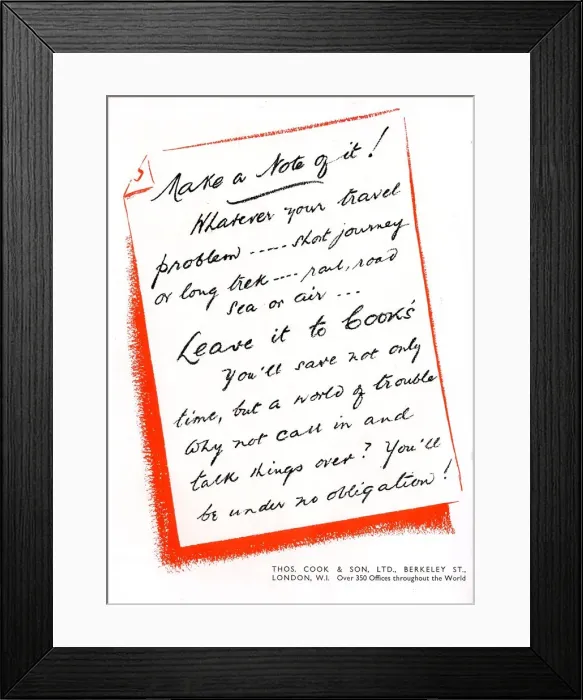 Make a Note of it!
Whatever your travel
problem ----- short journey
or long trek ---- rail, road
sea or air ...
Leave it to Cook's
You'll save not only
time, but a world of trouble
Why not call in and
talk things over? You'll
be under no obligation!
THOS. COOK & SON, LTD., BERKELEY ST.,
LONDON, W.I. Over 350 Offices throughout the World